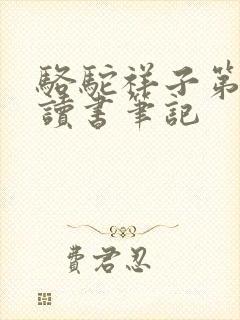 駱駝祥子第
讀書筆記
費君忍